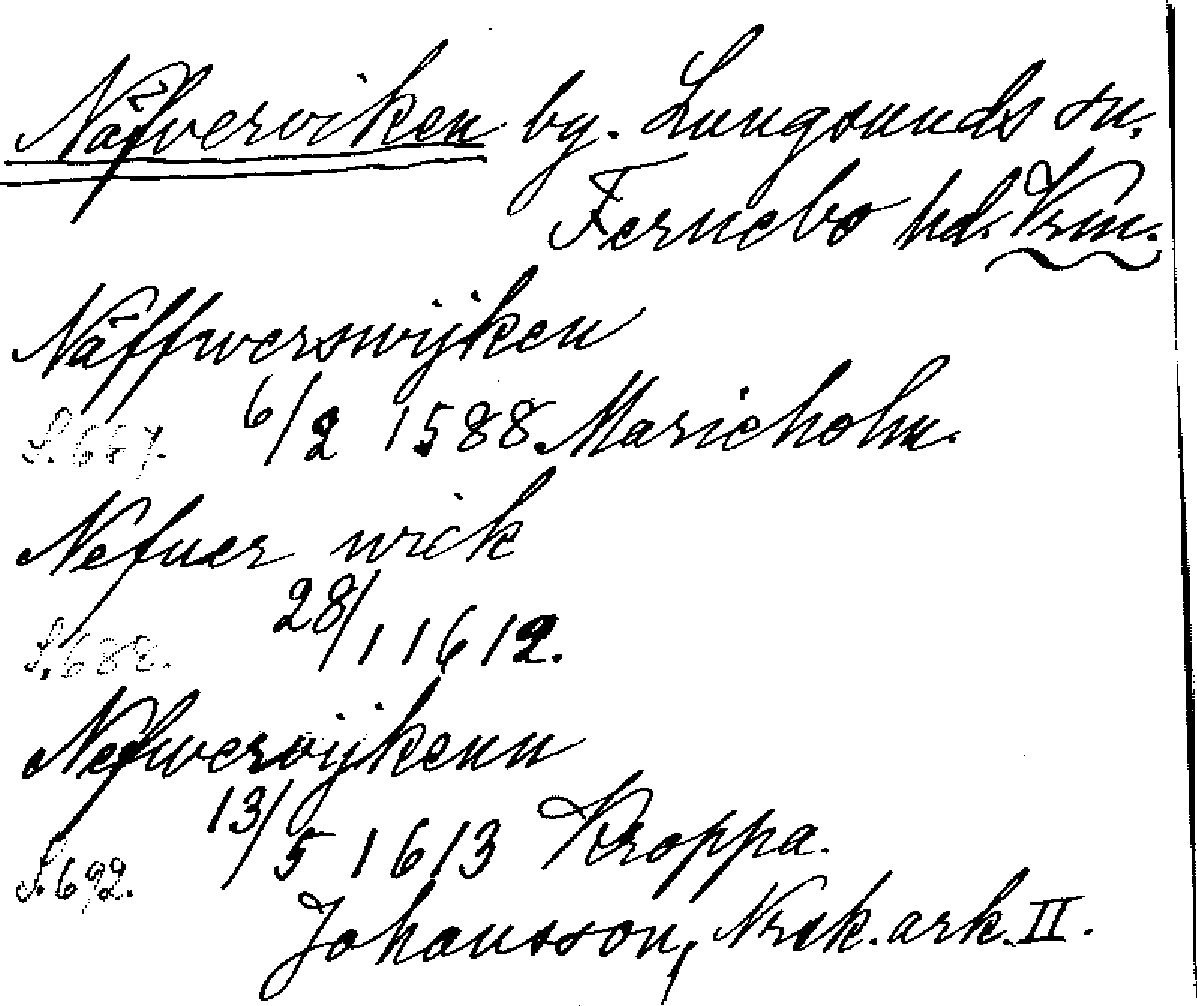 Näfverviken by. Lungsunds sn.
Fernebo hd. Vrm.
Näffwerswijken
S. 667. 6/2 1588. Marieholm.
Nefuer wick
S. 682. 28/1 1612.
Nefwervijkenn
S. 692. 13/5 1613 Kroppa.
Johansson, Nrsk. ark. II.